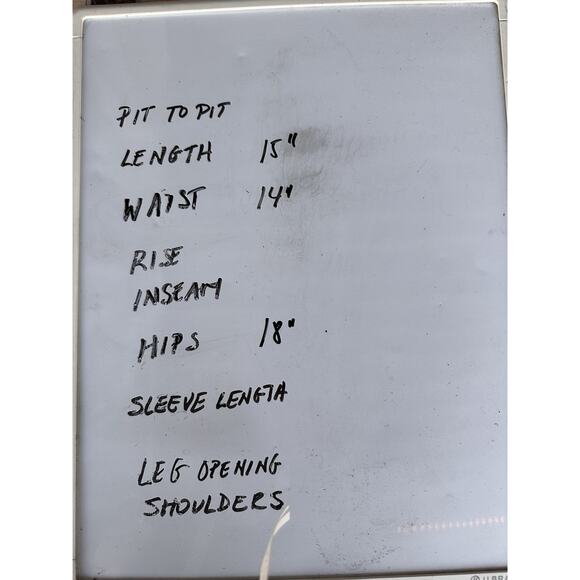 PIT TO PIT
LENGTH 15"
WAIST 14"
RISE
INSEAM
HIPS 18"
SLEEVE LENGTH
LEG OPENING
SHOULDERS